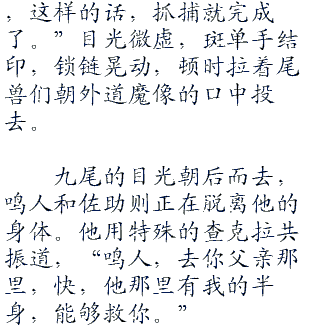 ，这样的话，抓捕就完成
了。”目光微虚，斑单手结
印，锁链晃动，顿时拉着尾
兽们朝外道魔像的口中投
去。
九尾的目光朝后而去，
鸣人和佐助则正在脱离他的
身体。他用特殊的查克拉共
振道，“鸣人，去你父亲那
里，快，他那里有我的半
身，能够救你。”